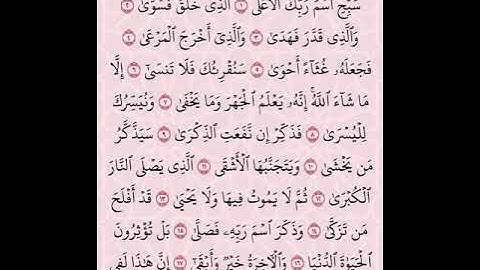 سَبِّحِ ٱسْمَ رَبِّكَ ٱلْأَعْلَى ١ ٱلَّذِى خَلَقَ فَسَوَّىٰ ٢
وَٱلَّذِى قَدَّرَ فَهَدَىٰ ٣ وَٱلَّذِىٓ أَخْرَجَ ٱلْمَرْعَىٰ ٤
فَجَعَلَهُۥ غُثَآءً أَحْوَىٰ ٥ سَنُقْرِئُكَ فَلَا تَنسَىٰٓ ٦ إِلَّا
مَا شَآءَ ٱللَّهُ ۚ إِنَّهُۥ يَعْلَمُ ٱلْجَهْرَ وَمَا يَخْفَىٰ ٧ وَنُيَسِّرُكَ
لِلْيُسْرَىٰ ٨ فَذَكِّرْ إِن نَّفَعَتِ ٱلذِّكْرَىٰ ٩ سَيَذَّكَّرُ
مَن يَخْشَىٰ ١٠ وَيَتَجَنَّبُهَا ٱلْأَشْقَى ١١ ٱلَّذِى يَصْلَى ٱلنَّارَ
ٱلْكُبْرَىٰ ١٢ ثُمَّ لَا يَمُوتُ فِيهَا وَلَا يَحْيَىٰ ١٣ قَدْ أَفْلَحَ
مَن تَزَكَّىٰ ١٤ وَذَكَرَ ٱسْمَ رَبِّهِۦ فَصَلَّىٰ ١٥ بَلْ تُؤْثِرُونَ
ٱلْحَيَوٰةَ ٱلدُّنْيَا ١٦ وَٱلْءَاخِرَةُ خَيْرٌ وَأَبْقَىٰٓ ١٧ إِنَّ هَٰذَا لَفِى